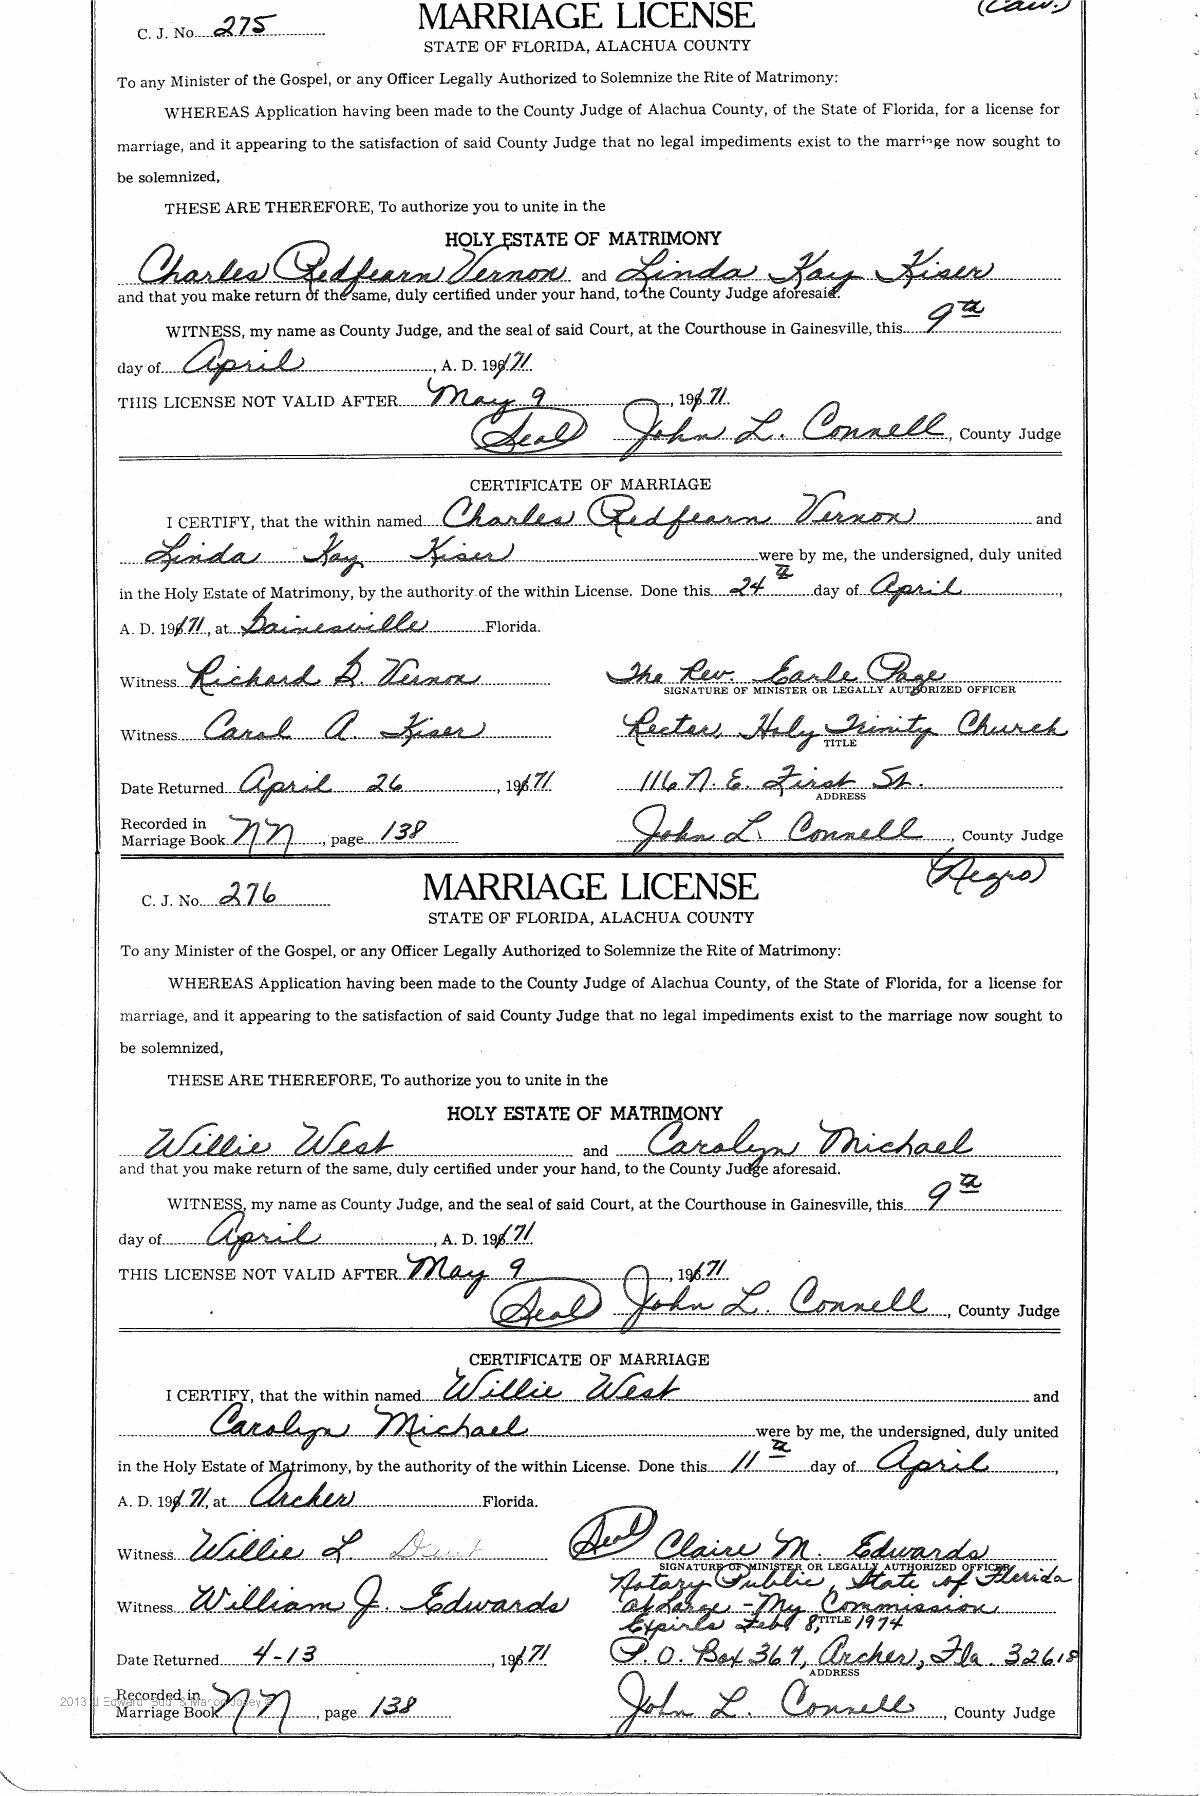 (Cau.)
C. J. No. 275 MARRIAGE LICENSE
STATE OF FLORIDA, ALACHUA COUNTY
To any Minister of the Gospel, or any Officer Legally Authorized to Solemnize the Rite of Matrimony:
WHEREAS Application having been made to the County Judge of Alachua County, of the State of Florida, for a license for
marriage, and it appearing to the satisfaction of said County Judge that no legal impediments exist to the marriage now sought to
be solemnized,
THESE ARE THEREFORE, To authorize you to unite in the
HOLY ESTATE OF MATRIMONY
Charles Redfearn Vernon and Linda Kay Kiser
and that you make return of the same, duly certified under your hand, to the County Judge aforesaid.
WITNESS, my name as County Judge, and the seal of said Court, at the Courthouse in Gainesville, this 9th
day of April, A. D. 1971.
THIS LICENSE NOT VALID AFTER May 9, 1971.
(Seal) John L. Connell, County Judge
CERTIFICATE OF MARRIAGE
I CERTIFY, that the within named Charles Redfearn Vernon and
Linda Kay Kiser were by me, the undersigned, duly united
in the Holy Estate of Matrimony, by the authority of the within License. Done this 24th day of April,
A. D. 1971, at Gainesville Florida.
Witness Richard G Vernon The Rev. Earle Page
SIGNATURE OF MINISTER OR LEGALLY AUTHORIZED OFFICER
Witness Carol A. Kiser Rector, Holy Trinity Church
TITLE
Date Returned April 26, 1971 116 N. E. First St.
ADDRESS
Recorded in
Marriage Book NN, page 138 John L. Connell, County Judge
(Negro)
C. J. No. 276 MARRIAGE LICENSE
STATE OF FLORIDA, ALACHUA COUNTY
To any Minister of the Gospel, or any Officer Legally Authorized to Solemnize the Rite of Matrimony:
WHEREAS Application having been made to the County Judge of Alachua County, of the State of Florida, for a license for
marriage, and it appearing to the satisfaction of said County Judge that no legal impediments exist to the marriage now sought to
be solemnized,
THESE ARE THEREFORE, To authorize you to unite in the
HOLY ESTATE OF MATRIMONY
Willie West and Carolyn Michael
and that you make return of the same, duly certified under your hand, to the County Judge aforesaid.
WITNESS, my name as County Judge, and the seal of said Court, at the Courthouse in Gainesville, this 9th
day of April, A. D. 1971.
THIS LICENSE NOT VALID AFTER May 9, 1971.
(Seal) John L. Connell, County Judge
CERTIFICATE OF MARRIAGE
I CERTIFY, that the within named Willie West and
Carolyn Michael were by me, the undersigned, duly united
in the Holy Estate of Matrimony, by the authority of the within License. Done this 11th day of April,
A. D. 1971, at Archer Florida.
Witness Willie L. (Seal) Claire M. Edwards
SIGNATURE OF MINISTER OR LEGALLY AUTHORIZED OFFICER
Notary Public, State of Florida
Witness William J. Edwards at Large - My Commission
Expires Feb. 8, 1974
TITLE
Date Returned 4-13, 1971 P. O. Box 367, Archer, Fla. 32618
ADDRESS
Recorded in
Marriage Book NN, page 138 John L. Connell, County Judge